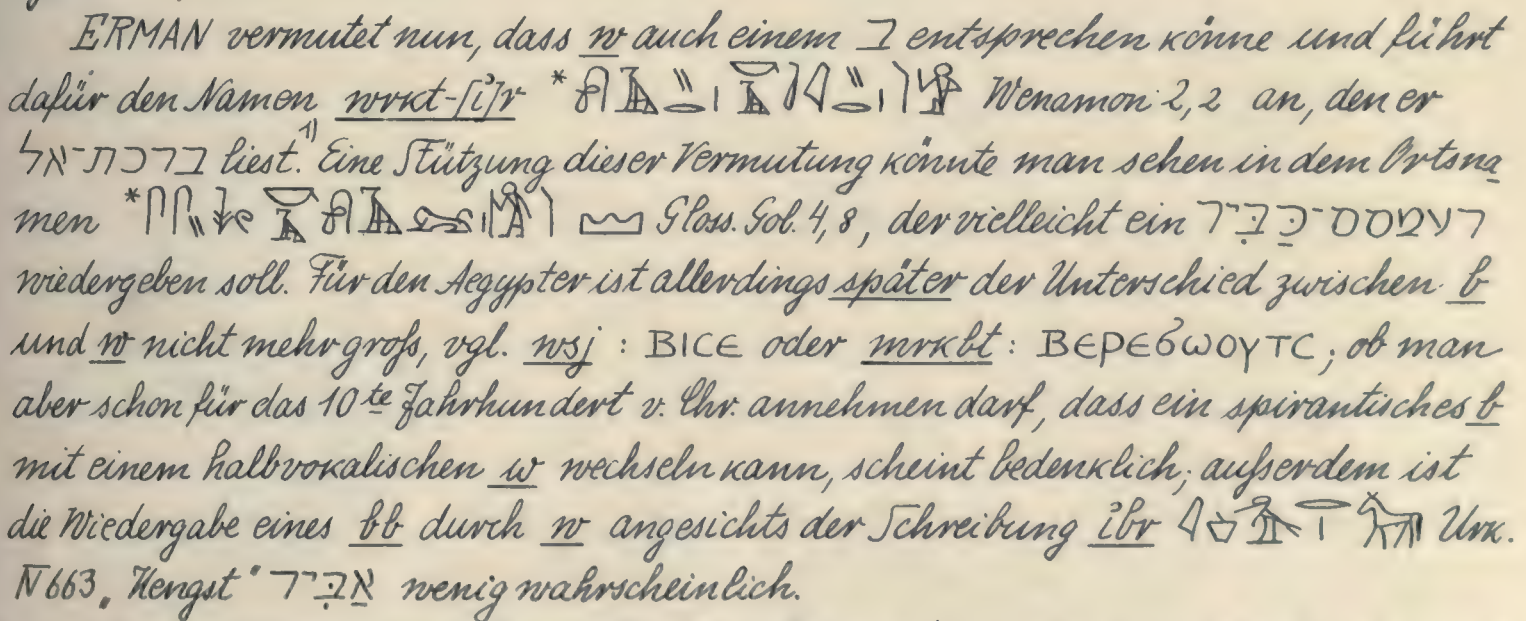 ERMAN vermutet nun, dass w auch einem ב entsprechen könne und führt
dafür den Namen wrkt-[i͗]r * Wenamon 2,2 an, den er
ברכת־אל liest.¹⁾ Eine Stützung dieser Vermutung könnte man sehen in dem Ortsna-
men * Gloss. Gol. 4,8, der vielleicht ein רעמסס־כַּבִּיר
wiedergeben soll. Für den Aegypter ist allerdings später der Unterschied zwischen b
und w nicht mehr groß, vgl. wsj : ⲂⲒⲤⲈ oder mrkbt : ⲂⲈⲢⲈϬⲰⲞⲨⲦⲤ; ob man
aber schon für das 10te Jahrhundert v. Chr. annehmen darf, dass ein spirantisches b
mit einem halbvokalischen w wechseln kann, scheint bedenklich; außerdem ist
die Wiedergabe eines bb durch w angesichts der Schreibung i͗br Urk.
IV 663 „Hengst“ אַבִּיר wenig wahrscheinlich.